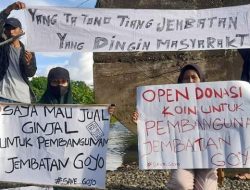 YANG TA TONO TIANG JEMBATAN
YANG DINGIN MASYARAKT
SAJA MAU JUAL
GINJAL
UNTUK PEMBANGUNAN
JEMBATAN GOYO
#SAVE GOJO
OPEN DONASI
KOIN UNTUK
PEMBANGUNA
JEMBATAN
GOYO